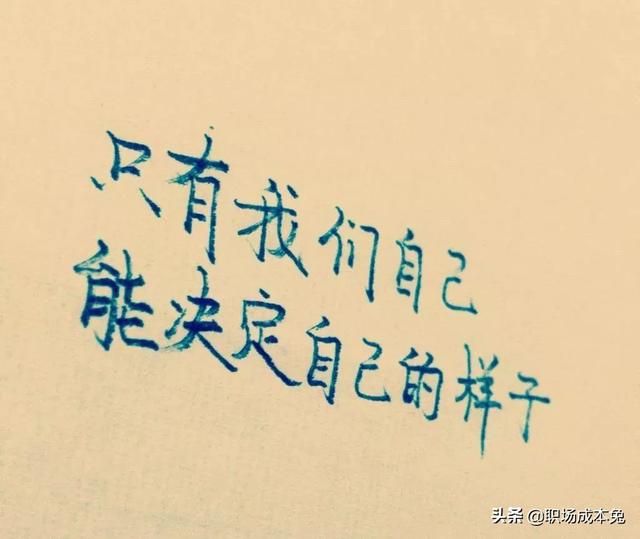 只有我们自己
能决定自己的样子
头条 @职场成本兔